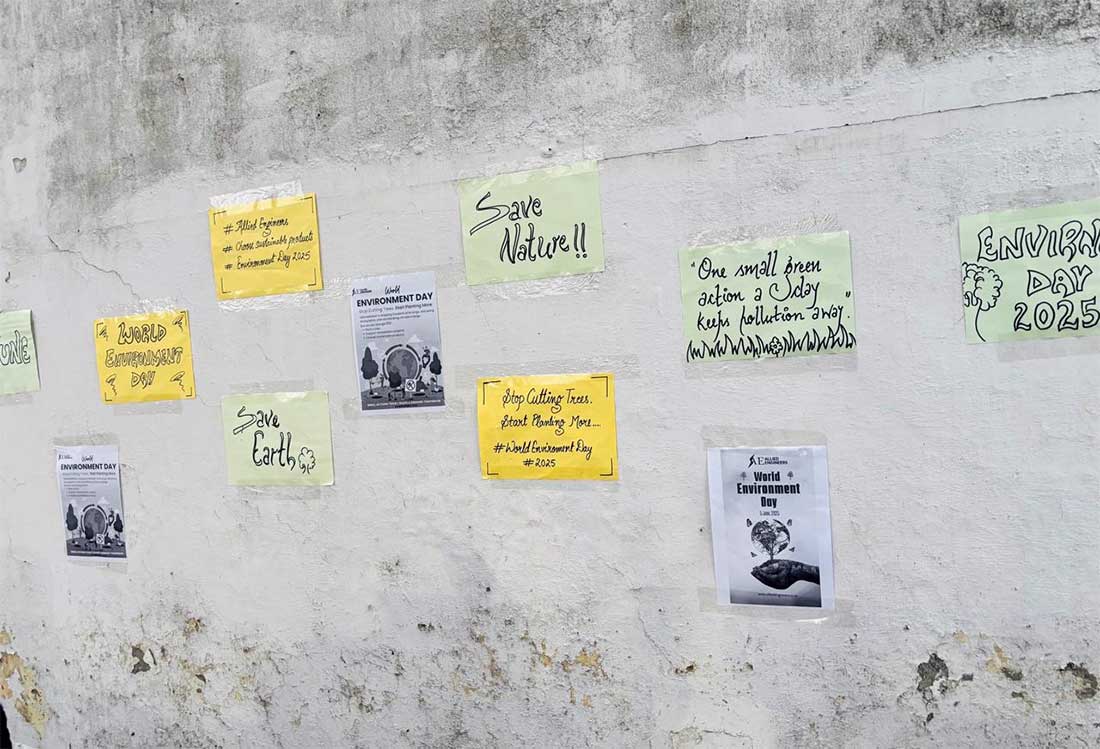 # Allied Engineers
# Choose sustainable products
# Environment Day 2025
Save
Nature!!
"One small green
action a day
keeps pollution away."
ENVIRN
DAY
2025
UNE
WORLD
ENVIRONMENT
DAY
World
ENVIRONMENT DAY
Stop Cutting Trees, Start Planting More
Stop Cutting Trees.
Start Planting More....
#World Enviroment Day
#2025
Save
Earth
World
ENVIRONMENT DAY
ALLIED
ENGINEERS
World
Environment
Day
5 June, 2025